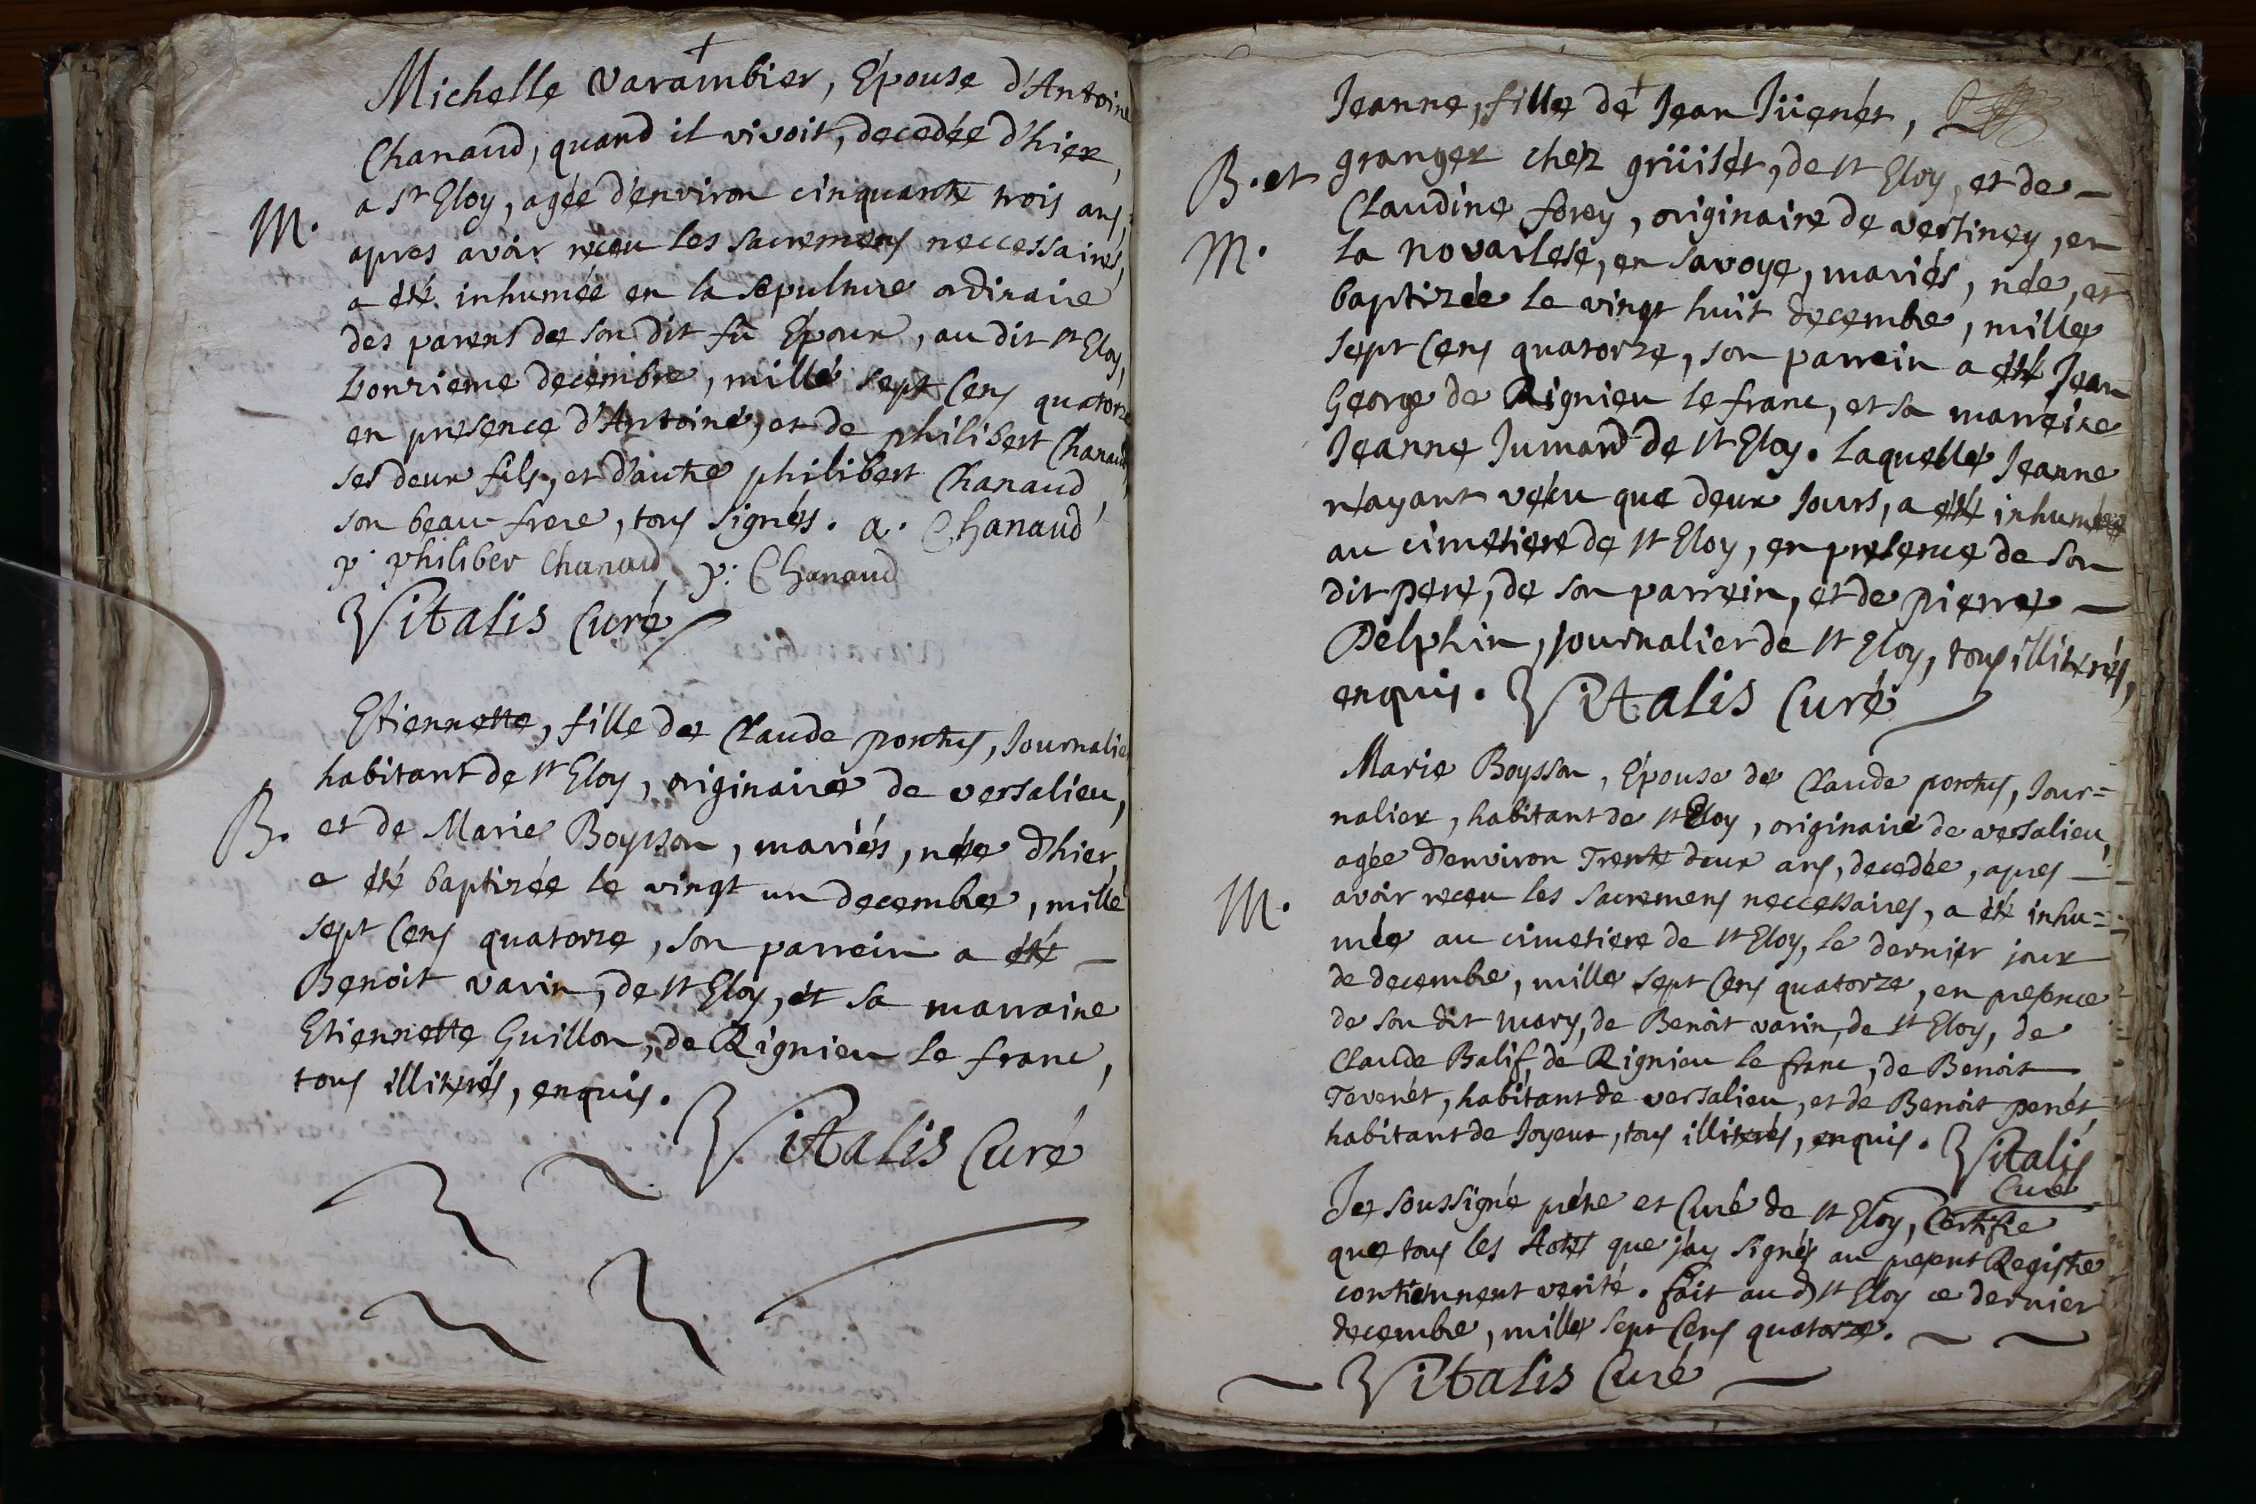 Michelle varambier, Epouse d'Antoine
Chanaud, quand il vivoit, decedée d'hier,
a st Eloy, agée d'environ cinquante trois ans,
M.
apres avoir receu les sacremens neccessaires,
a été inhumée en la sepulture ordinaire
des parens de son dit fü Epoux, au dit st Eloy,
l'onzieme decembre, mille sept Cens quatorze
en presence d'Antoine, et de philibert Chanaud,
ses deux fils, et d'autre philibert Chanaud,
son beau frere, tous signés. a. Chanaud
p. philiber Chanaud p: Chanaud
Vitalis Curé
Etiennette, fille de Claude ponthus, Journalie
habitant de st Eloy, originaire de versalieu,
B. et de Marie Boysson, mariés, née d'hier
a été baptizée le vingt un decembre, mille
sept Cens quatorze, son parrein a été
Benoit varin, de st Eloy, et sa marraine
Etiennette Guillon, de Rignieu le franc,
tous illiterés, enquis.
Vitalis Curé
Jeanne, fille de Jean Jüenét,
B. et granger chéz grüisét, de st Eloy, et de
Claudine forey, originaire de vestiney, en
M. la novarlese, en savoye, mariés, née, et
baptizée le vingt huit decembre, mille
sept Cens quatorze, son parrein a été Jean
George de Rignieu le franc, et sa marreine
Jeanne Jumard de st Eloy. laquelle Jeanne
n'ayant vécu que deux Jours, a été inhumée
au cimetiere de st Eloy, en presence de son
dit pere, de son parrein, et de pierre
Delphin, journalier de st Eloy, tous illiterés,
enquis. Vitalis Curé
Marie Boysson, Epouse de Claude ponthus, Jour=
nalier, habitant de st Eloy, originaire de versalieu,
agée d'environ Trente deux ans, decedée, apres
M. avoir receu les sacremens neccessaires, a été inhu=
mée au cimetiere de st Eloy, le dernier jour
de decembre, mille sept Cens quatorze, en presence
de son dit mary, de Benoit varin, de st Eloy, de
Claude Balif, de Rignieu le franc, de Benoit
Tevenét, habitant de versalieu, et de Benoit penét
habitant de Joyeux, tous illiterés, enquis. Vitalis
Curé
Je soussigné prétre et Curé de st Eloy, Certifie
que tous les Actes que j'ay signés au present Registre
contiennent verité. fait au d st Eloy ce dernier
decembre, mille sept Cens quatorze.
Vitalis Curé